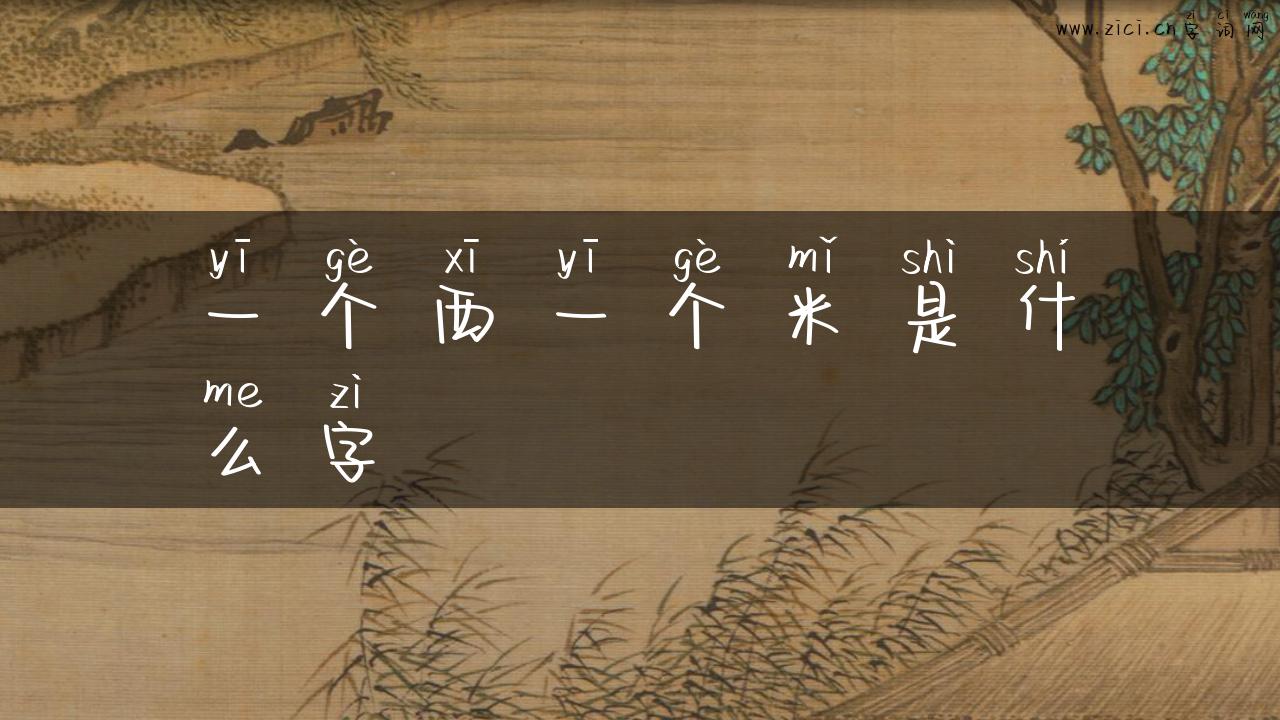 zì cí wǎng
www.zici.cn字词网
yī gè xī yī gè mǐ shì shí
一个西一个米是什
me zì
么字